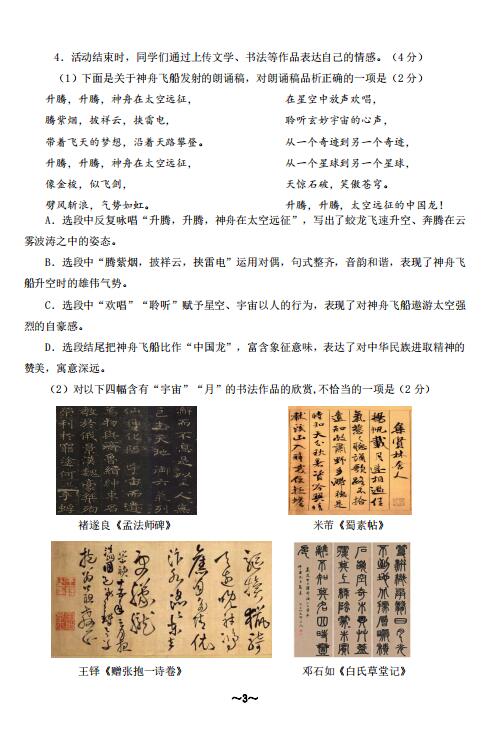 4．活动结束时，同学们通过上传文学、书法等作品表达自己的情感。（4分）
（1）下面是关于神舟飞船发射的朗诵稿，对朗诵稿品析正确的一项是（2分）
升腾，升腾，神舟在太空远征， 在星空中放声欢唱，
腾紫烟，披祥云，挟雷电， 聆听玄妙宇宙的心声，
带着飞天的梦想，沿着天路攀登。 从一个奇迹到另一个奇迹，
升腾，升腾，神舟在太空远征， 从一个星球到另一个星球，
像金梭，似飞剑， 天惊石破，笑傲苍穹。
劈风斩浪，气势如虹。 升腾，升腾，太空远征的中国龙！
A．选段中反复咏唱“升腾，升腾，神舟在太空远征”，写出了蛟龙飞速升空、奔腾在云
雾波涛之中的姿态。
B．选段中“腾紫烟，披祥云，挟雷电”运用对偶，句式整齐，音韵和谐，表现了神舟飞
船升空时的雄伟气势。
C．选段中“欢唱”“聆听”赋予星空、宇宙以人的行为，表现了对神舟飞船遨游太空强
烈的自豪感。
D．选段结尾把神舟飞船比作“中国龙”，富含象征意味，表达了对中华民族进取精神的
赞美，寓意深远。
（2）对以下四幅含有“宇宙”“月”的书法作品的欣赏，不恰当的一项是（2分）
褚遂良《孟法师碑》 米芾《蜀素帖》
王铎《赠张抱一诗卷》 邓石如《白氏草堂记》
～3～